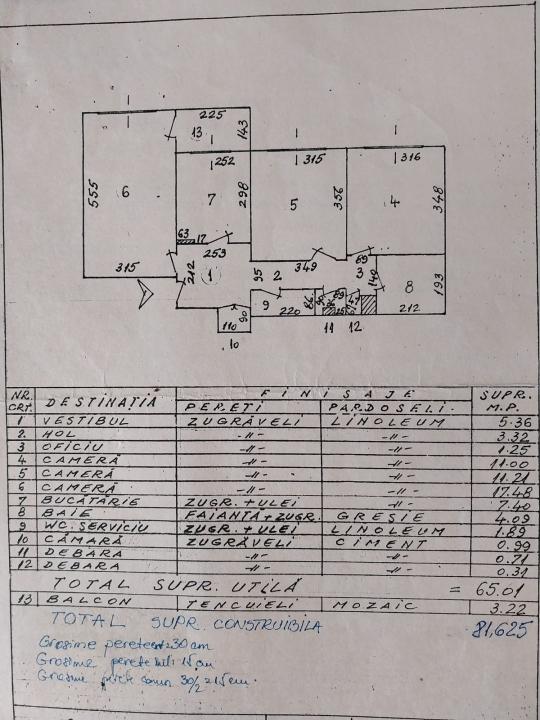 225
13
143
252
315
316
555
6
7
298
5
356
4
348
63
17
253
315
212
1
95
2
349
3
69
140
8
193
9
220
86
69
47
212
110
90
10
11
12
NR. CRT. DESTINAȚIA FINISAJE SUPR. M.P.
PEREȚI PARDOSELI.
1 VESTIBUL ZUGRĂVELI LINOLEUM 5.36
2. HOL -//- -//- 3.32
3 OFICIU -//- -//- 1.25
4 CAMERĂ -//- -//- 11.00
5 CAMERĂ -//- -//- 11.21
6 CAMERĂ -//- -//- 17.48
7 BUCĂTĂRIE ZUGR. + ULEI -//- 7.40
8 BAIE FAIANȚĂ + ZUGR. GRESIE 4.09
9 WC. SERVICIU ZUGR. + ULEI LINOLEUM 1.89
10 CĂMARĂ ZUGRĂVELI CIMENT 0.99
11 DEBARA -//- -//- 0.71
12 DEBARA -//- -//- 0.31
TOTAL SUPR. UTILĂ = 65.01
13 BALCON TENCUIELI MOZAIC 3.22
TOTAL SUPR. CONSTRUIBILA 81,625
Grosime perete ext = 30 cm
Grosime perete int : 15 cm
Grosime perete comun 30/2 = 15 cm.